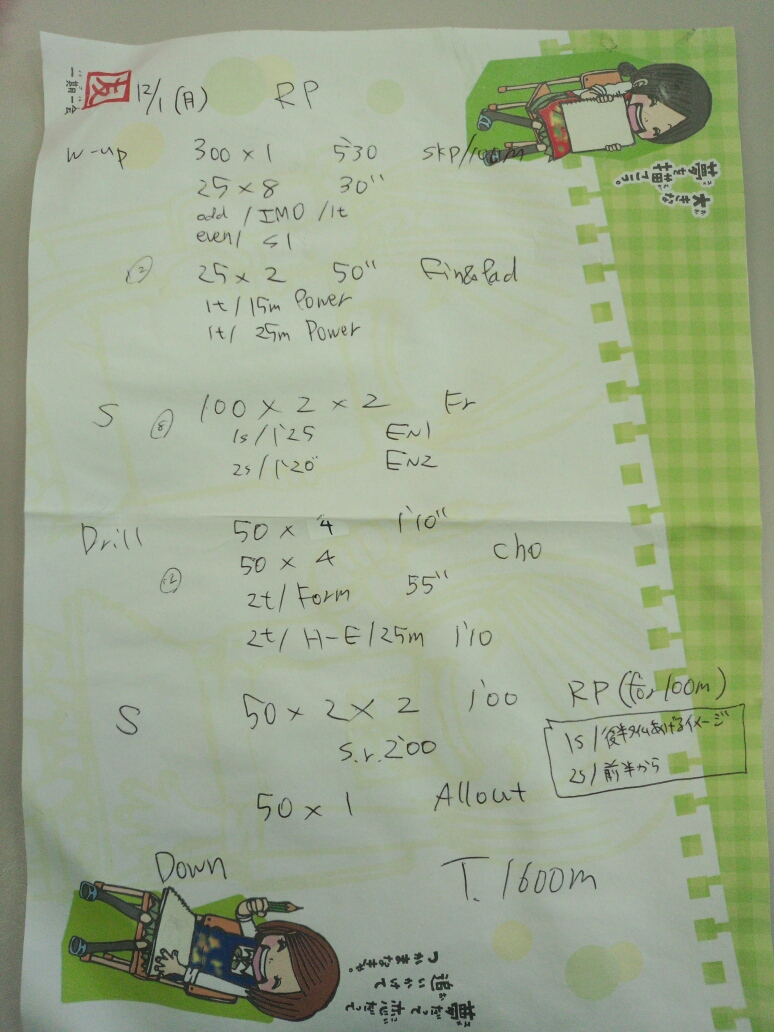 友
一期一会
12/1 (月) RP
W-up 300 × 1 5'30 SKP/100m
25 × 8 30"
odd / IMO / 1t
even / S1
大きな
夢を
描こう。
② 25 × 2 50" Fin&Pad
1t / 15m Power
1t / 25m Power
S ⑧ 100 × 2 × 2 Fr
1s / 1'25 EN1
2s / 1'20 EN2
Drill 50 × 4 1'10"
50 × 4 cho
⑫ 2t / Form 55"
2t / H-E / 25m 1'10
S 50 × 2 × 2 1'00 RP (for 100m)
S.r. 2'00
1s / 後半タイムあげるイメージ
2s / 前半から
50 × 1 Allout
Down T. 1600m
夢だって
恋だって
追いかけて
つかまなきゃ。